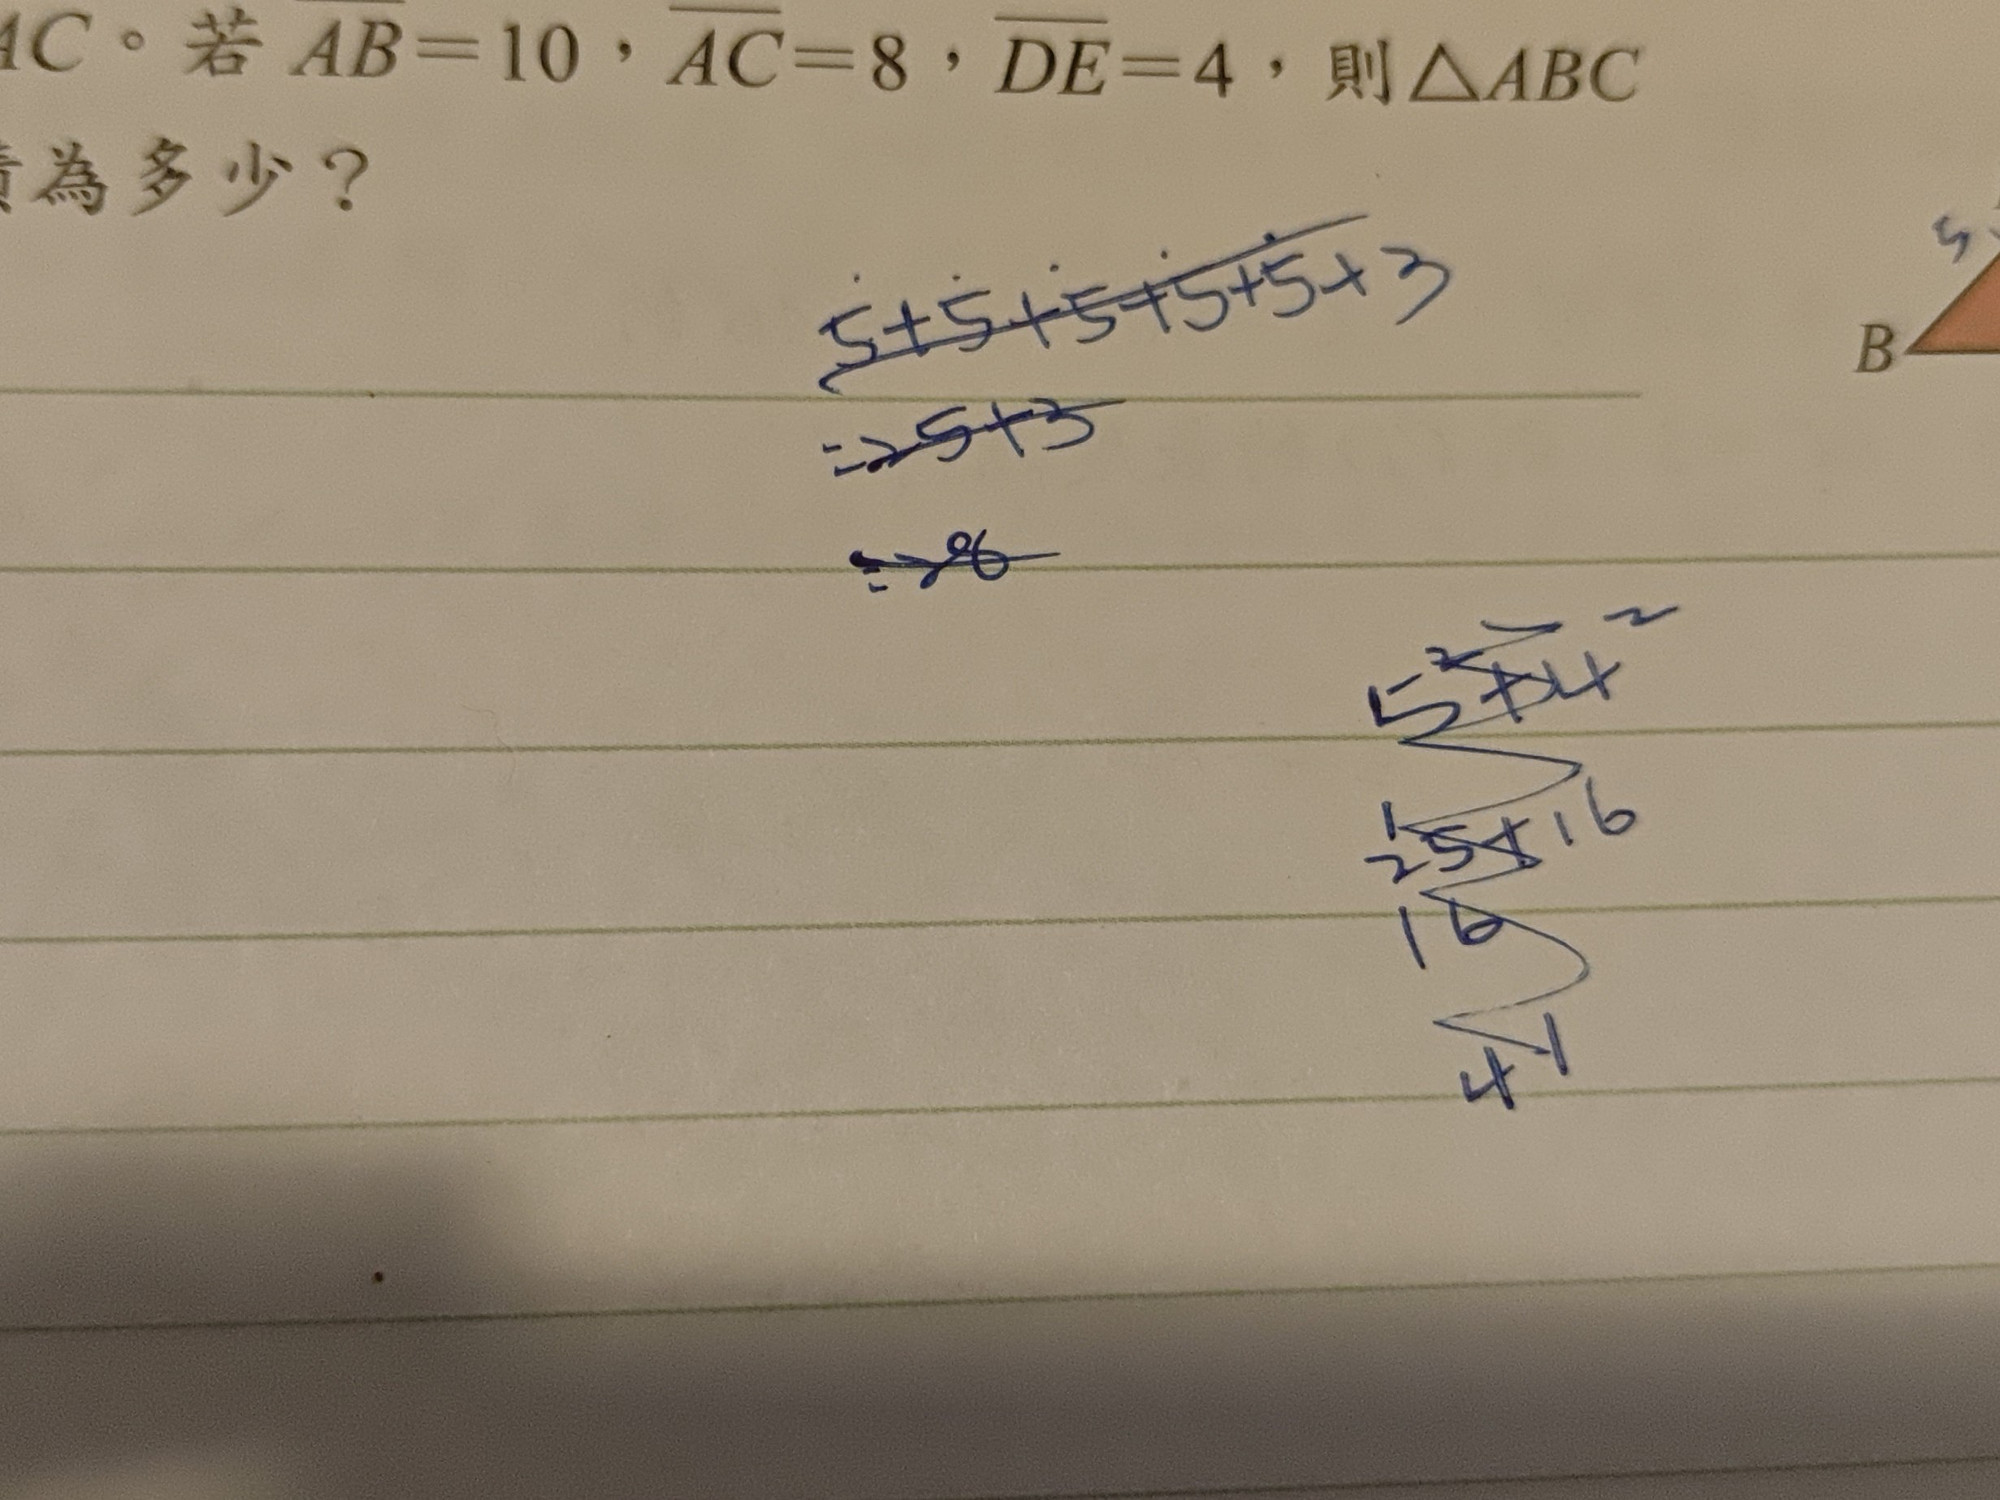 AC。若 AB=10，AC=8，DE=4，則△ABC
為多少？
5
5+5+5+5+5+3
B
=25+3
=28
5²+4²
1
25+16
16
41